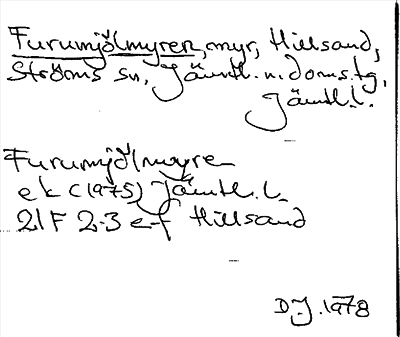 Furumjölmyren, myr, Hillsand,
Ströms sn, Jämtl. n. doms.tg,
Jämtl.l.
Furumjölmyren
ek (1975) Jämtl. l.
21F 2-3 e-f Hillsand
D.J. 1978